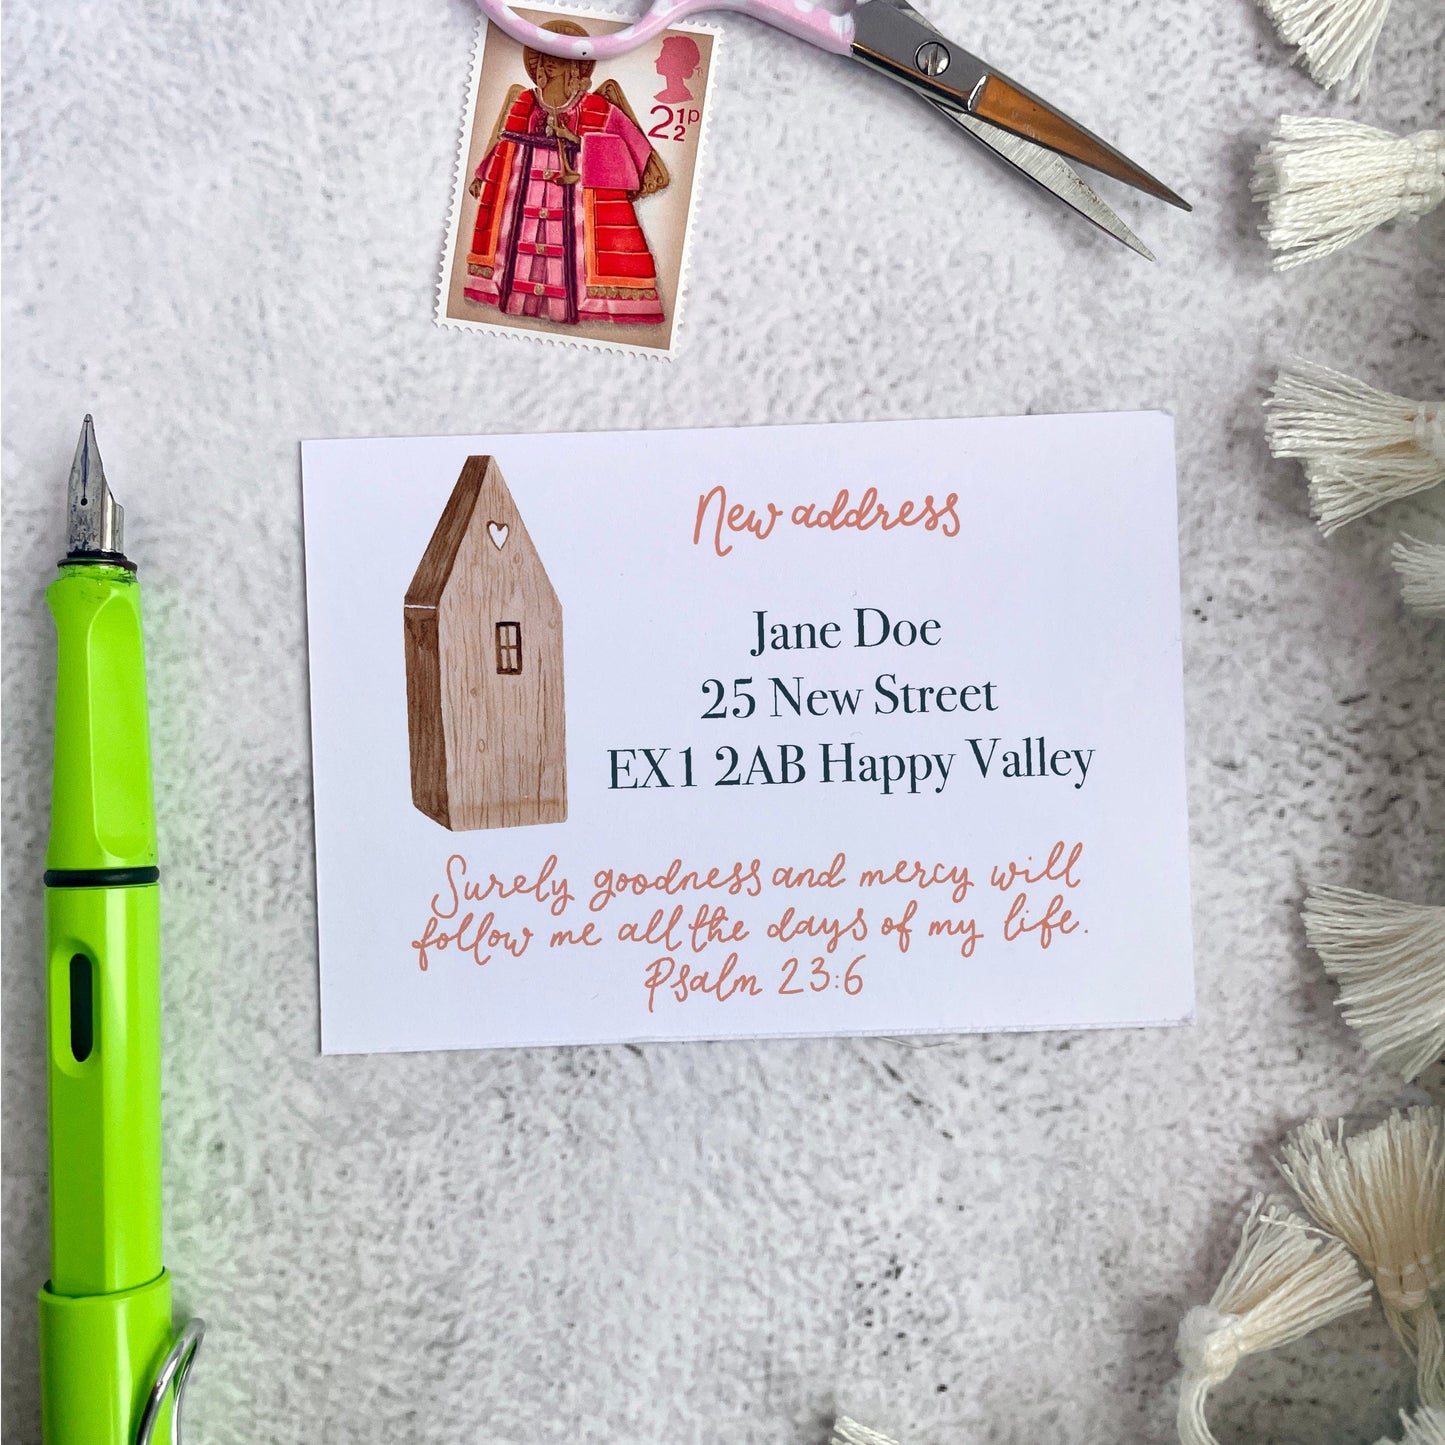 2½p
New address
Jane Doe
25 New Street
EX1 2AB Happy Valley
Surely goodness and mercy will
follow me all the days of my life.
Psalm 23:6